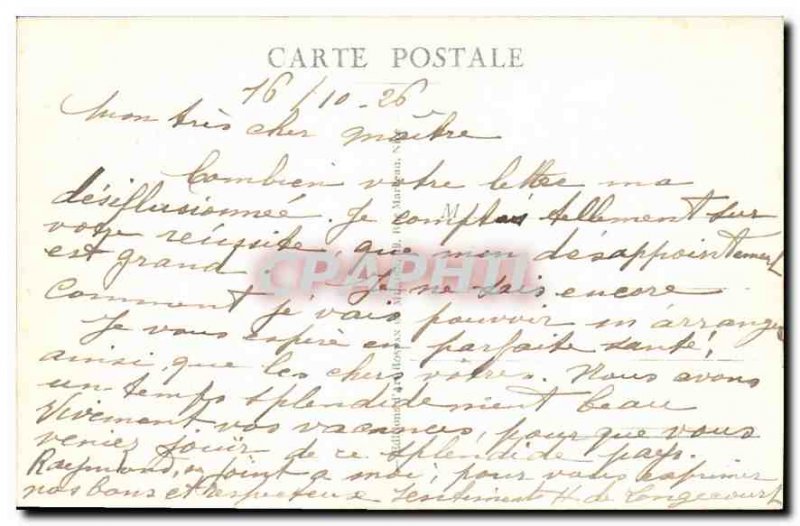 CARTE POSTALE
16/10-26
Mon très cher maître
Combien votre lettre ma
désillusionnée. Je comptais tellement sur
votre réussite, que mon désappointement
est grand. Je ne sais encore
comment j'vais pouvoir m'arranger
Je vous espère en parfaite santé,
ainsi que les chers vôtres. Nous avons
un temps splendide ment beau
Vivement vos vacances, pour que vous
veniez jouir de ce splendide pays.
Raymond, se joint a moi, pour vous exprimer
nos bons et respectueux sentiments H de Longecourt
CPAPHIL